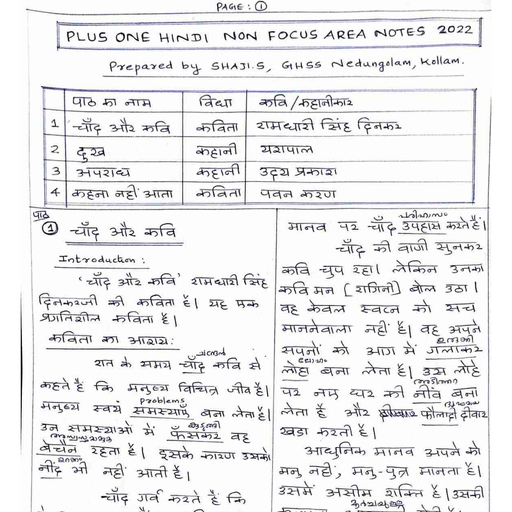 PAGE : 1
PLUS ONE HINDI NON FOCUS AREA NOTES 2022
Prepared by SHAJI.S, GHSS Nedungolam, Kollam.
पाठ का नाम विधा कवि/कहानीकार
1 चाँद और कवि कविता रामधारी सिंह दिनकर
2 दुख कहानी यशपाल
3 अपराध कहानी उदय प्रकाश
4 कहना नहीं आता कविता पवन करण
पाठ
1 चाँद और कवि
Introduction :
'चाँद और कवि' रामधारी सिंह
दिनकरजी की कविता है। यह एक
प्रगतिशील कविता है।
कविता का आशय:
रात के समय चाँद कवि से
कहते है कि मनुष्य विचित्र जीव है।
problems
मनुष्य स्वयं समस्याएँ बना लेता है।
उन समस्याओं में फँसकर वह
बेचैन रहता है। इसके कारण उसको
नींद भी नहीं आती है।
चाँद गर्व करते है कि
परिहास
मानव पर चाँद उपहास करते हैं।
चाँद की वाणी सुनकर
कवि चुप रहा। लेकिन उनका
कवि मन [रागिनी] बोल उठा।
वह केवल स्वप्न को सच
माननेवाला नहीं है। वह अपने
सपनों को आग में गलाकर
लोहा बना लेता है। उस लोहे
पर नए घर की नींव बना
लेता है और फौलादी दीवार
खड़ा करती है।
आधुनिक मानव अपने को
मनु नहीं, मनु-पुत्र मानता है।
उसमें असीम शक्ति है। उसकी